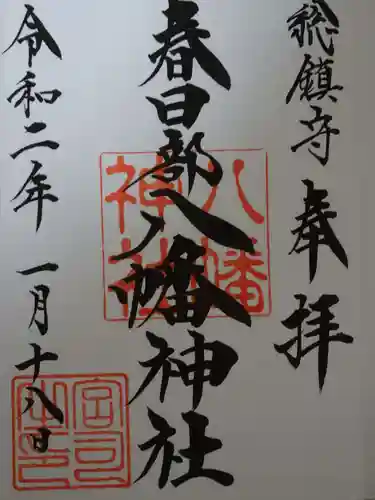 総鎮守 奉拝
春日部八幡神社
令和二年 一月十八日
八幡
神社
宮司
之印